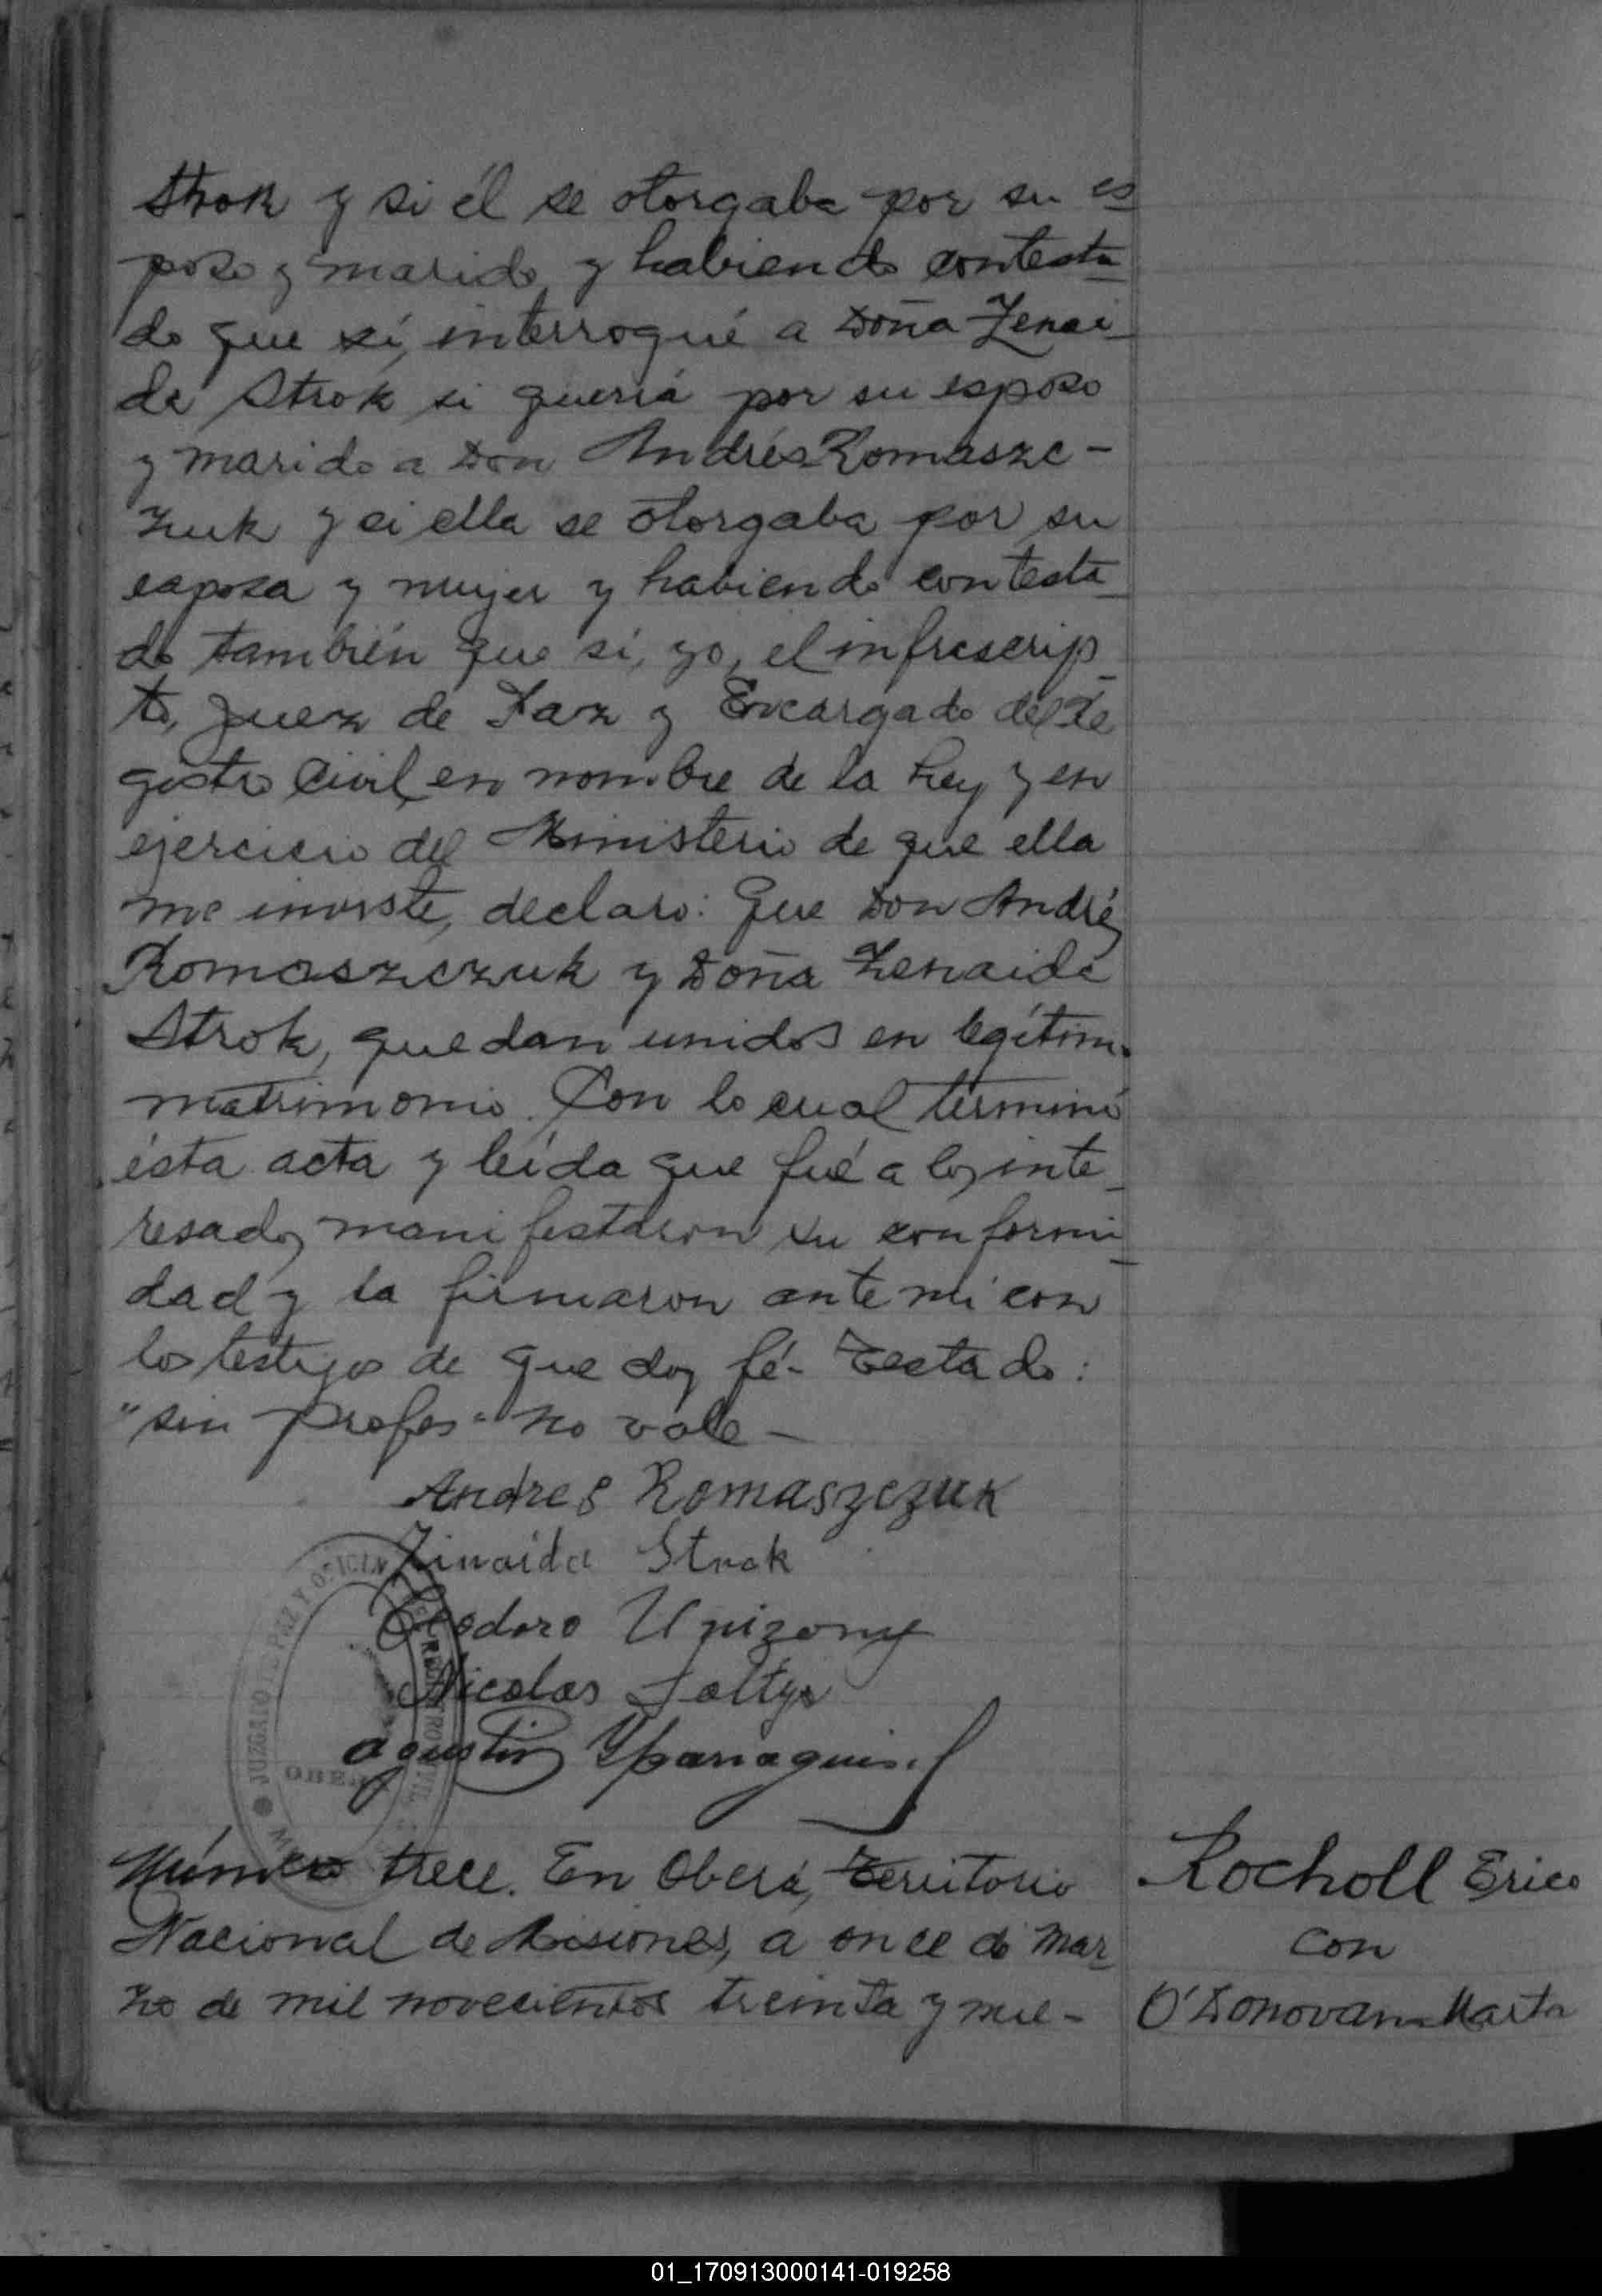 Strok y si él se otorgaba por su es
poso y marido, y habiendo contesta
do que sí, interrogué a Doña Zenai
da Strok si quería por su esposo
y marido a Don Andrés Romaszc-
zuk y si ella se otorgaba por su
esposa y mujer y habiendo contesta
do también que sí, yo, el infrascrip
to, Juez de Paz y Encargado del Re
gistro Civil, en nombre de la Ley y en
ejercicio del Ministerio de que ella
me inviste, declaro: Que Don Andrés
Romaszczuk y Doña Zenaida
Strok, quedan unidos en legítimo
matrimonio. Con lo cual terminó
ésta acta y leída que fué a los inte
resados manifestaron su conformi
dad y la firmaron ante mí con
los testigos de que doy fé- Testado:
"sin profes" no vale-
Andres Romaszczuk
Zinaida Strok
Teodoro
Nicolas Soltys
JUZGADO DE PAZ Y OFICINA DEL REGISTRO CIVIL
OBERA
Agustin
Número trece. En Oberá, Territorio
Nacional de Misiones, a once de Mar
zo de mil novecientos treinta y nue-
Rocholl Erico
con
O'Donovan Marta
01_170913000141-019258